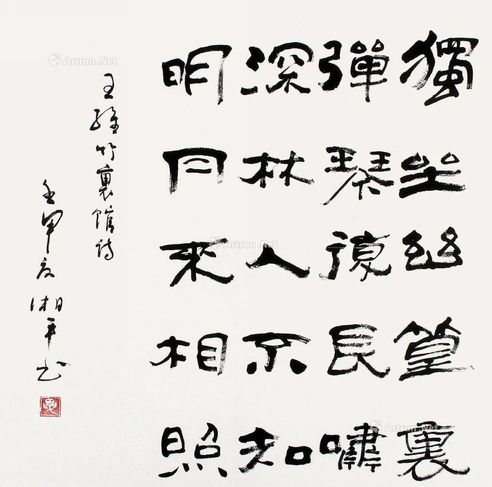 獨坐幽篁裏
彈琴復長嘯
深林人不知
明月來相照
王維竹裏館詩
壬申夏湘平书
Artron.Net